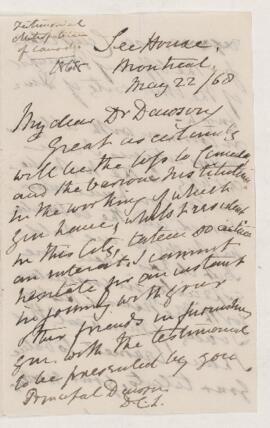 Testimonial
Metropolitan
of Canada
1868
See House,
Montreal,
May 22/68
My dear Dr Dawson
Great as certainly
will be the loss to Canada
and the various Institutions
in the working of which
you have, whilst resident
in this City, taken so active
an interest, I cannot
hesitate for an instant
in joining with your
other friends in furnishing
you with the testimonial
to be presented by you.
Principal Dawson
D.C.L.